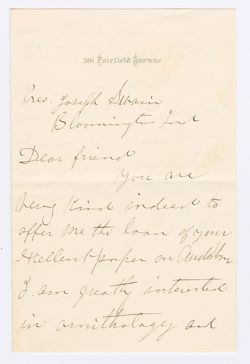 391 Fairfield Avenue
Pres. Joseph Swain
Bloomington Ind
Dear friend
You are
very kind indeed to
offer me the loan of your
excellent paper on Audubon
I am greatly interested
in ornithology and